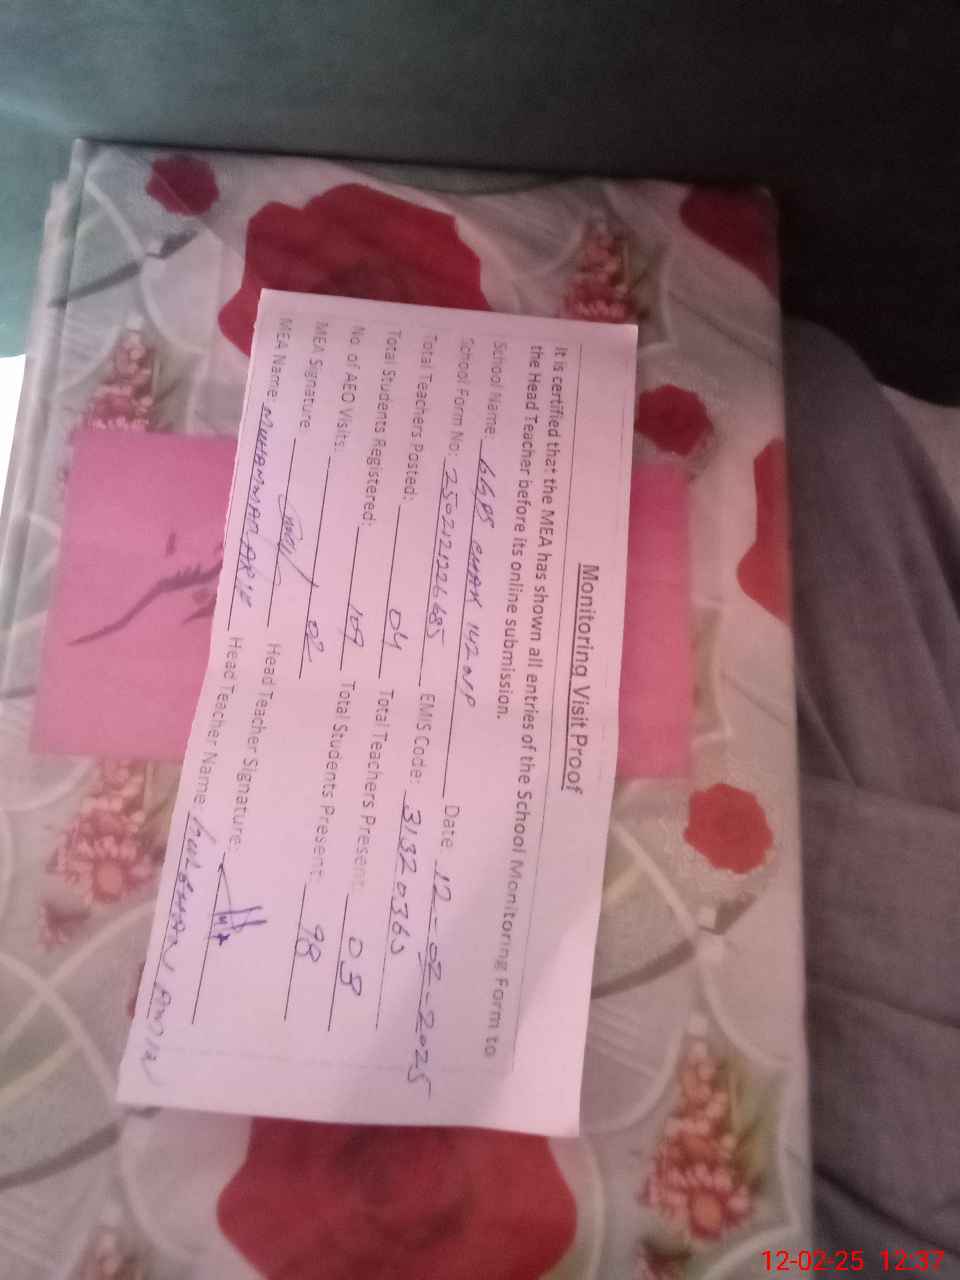 Monitoring Visit Proof
It is certified that the MEA has shown all entries of the School Monitoring Form to
the Head Teacher before its online submission.
School Name: GGPS CHAK 142 Date 12-02-2025
School Form No: EMIS Code: 31320363
Total Teachers Posted: 04 Total Teachers Present: 03
Total Students Registered: 109 Total Students Present: 98
No. of AEO Visits: 02
MEA Signature Head Teacher Signature:
MEA Name: MUHAMMAD Head Teacher Name: AMIN
12-02-25 12:37